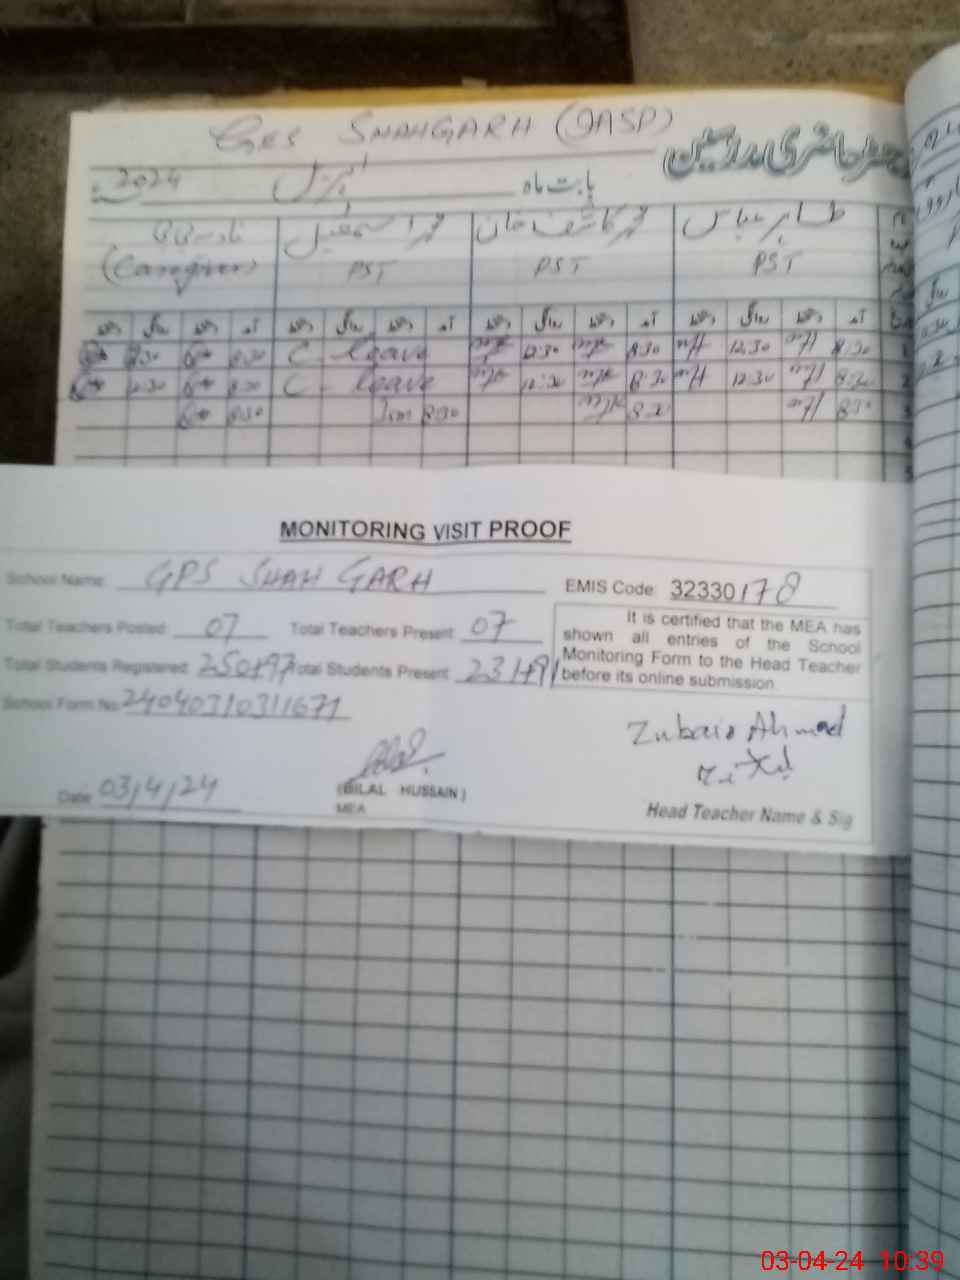 GES SHAHGARH (IASP)
حاضری مدرسین
بابت ماہ اپریل 2024
طاہر عباس محمد کاشف خان محمد اسمعیل نادیہ بی بی
PST PST PST (Caregiver)
آمد دستخط روانگی دستخط آمد دستخط روانگی دستخط آمد دستخط روانگی دستخط آمد دستخط روانگی دستخط
1 8:30 12:30 8:30 12:30 C- leave 8:30
2 8:30 12:30 8:30 C- leave 8:30 12:30
3 8:30 8:30 8:30 8:30
MONITORING VISIT PROOF
School Name: GPS SHAH GARH EMIS Code: 32330178
Total Teachers Posted: 07 Total Teachers Present: 07
Total Students Registered: 250+97 Total Students Present: 231+91
School Form No: 24040310311671
It is certified that the MEA has
shown all entries of the School
Monitoring Form to the Head Teacher
before its online submission.
Zubair Ahmad
Date: 03/4/24
(BILAL HUSSAIN)
MEA
Head Teacher Name & Sig
03-04-24 10:39